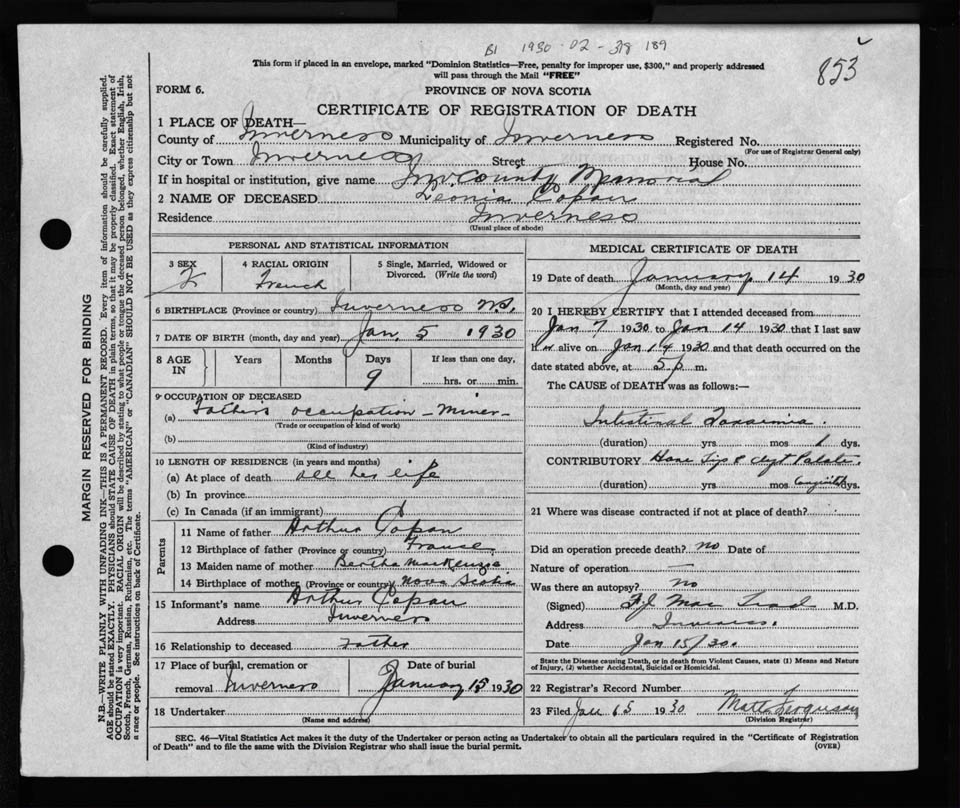 B1 1930-02-318 189
853
This form if placed in an envelope, marked "Dominion Statistics—Free, penalty for improper use, $300," and properly addressed
will pass through the Mail "FREE"
FORM 6.
PROVINCE OF NOVA SCOTIA
CERTIFICATE OF REGISTRATION OF DEATH
1 PLACE OF DEATH—
County of Inverness Municipality of Inverness Registered No.
(For use of Registrar General only)
City or Town Inverness Street House No.
If in hospital or institution, give name Inv. County Memorial
2 NAME OF DECEASED Leonia Copan
Residence Inverness
(Usual place of abode)
PERSONAL AND STATISTICAL INFORMATION
3 SEX
F
4 RACIAL ORIGIN
French
5 Single, Married, Widowed or
Divorced. (Write the word)
6 BIRTHPLACE (Province or country) Inverness N.S.
7 DATE OF BIRTH (month, day and year) Jan. 5 1930
8 AGE
IN
Years Months Days If less than one day,
9 hrs. or min.
9 OCCUPATION OF DECEASED
(a) Father's occupation - miner -
(Trade or occupation or kind of work)
(b)
(Kind of industry)
10 LENGTH OF RESIDENCE (in years and months)
(a) At place of death all her life
(b) In province
(c) In Canada (if an immigrant)
Parents
11 Name of father Arthur Copan
12 Birthplace of father (Province or country) France
13 Maiden name of mother Bertha MacKenzie
14 Birthplace of mother (Province or country) Nova Scotia
15 Informant's name Arthur Copan
Address Inverness
16 Relationship to deceased Father
17 Place of burial, cremation or
removal Inverness
Date of burial
January 15 1930
18 Undertaker
(Name and address)
MEDICAL CERTIFICATE OF DEATH
19 Date of death January 14 1930
(Month, day and year)
20 I HEREBY CERTIFY that I attended deceased from
Jan 7 1930 to Jan 14 1930 that I last saw
h er alive on Jan 14 1930 and that death occurred on the
date stated above, at 5 p. m.
The CAUSE of DEATH was as follows:—
Intestinal Toxaemia.
(duration) yrs mos 1 dys.
CONTRIBUTORY Hare Lip & Cleft Palate.
(duration) yrs mos Congenital dys.
21 Where was disease contracted if not at place of death?
Did an operation precede death? no Date of
Nature of operation —
Was there an autopsy? no
(Signed) F.J. Mac Leod M.D.
Address Inverness.
Date Jan 15/30.
State the Disease causing Death, or in death from Violent Causes, state (1) Means and Nature
of Injury, (2) whether Accidental, Suicidal or Homicidal.
22 Registrar's Record Number
23 Filed Jan 15 1930 Matt. Ferguson
(Division Registrar)
SEC. 46—Vital Statistics Act makes it the duty of the Undertaker or person acting as Undertaker to obtain all the particulars required in the "Certificate of Registration
of Death" and to file the same with the Division Registrar who shall issue the burial permit.
(OVER)
MARGIN RESERVED FOR BINDING
N.B.—WRITE PLAINLY WITH UNFADING INK—THIS IS A PERMANENT RECORD. Every item of information should be carefully supplied.
AGE should be stated EXACTLY. PHYSICIANS should STATE CAUSE OF DEATH in plain terms, so that it may be properly classified. Exact statement of
OCCUPATION is very important. RACIAL ORIGIN will be described by stating to what people or tongue the deceased person belonged, whether English, Irish,
Scotch, French, German, Russian, Ruthenian, etc. The terms "AMERICAN" or "CANADIAN" SHOULD NOT BE USED as they express citizenship but not
a race or people. See instructions on back of Certificate.